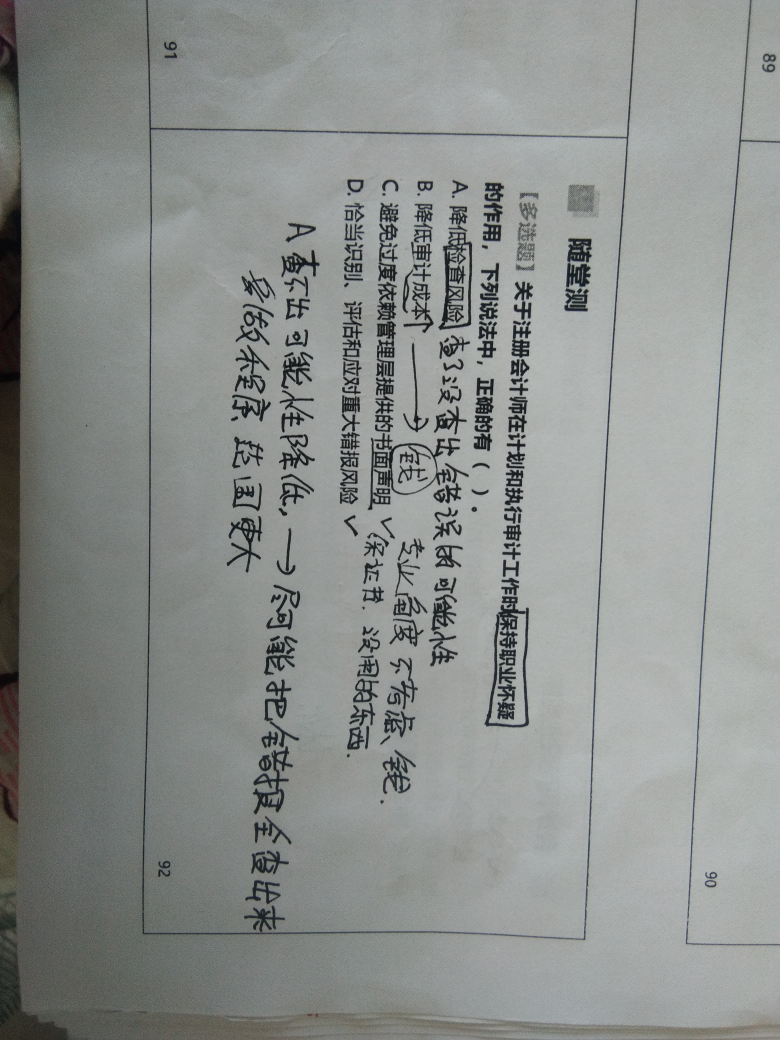 89
90
91
随堂测
【多选题】关于注册会计师在计划和执行审计工作时保持职业怀疑
的作用，下列说法中，正确的有（ ）。
A. 降低检查风险 查了没查出错误的可能性
B. 降低审计成本↑ → 钱 专业角度不考虑钱.
C. 避免过度依赖管理层提供的书面声明 ✓保证书. 没用的东西.
D. 恰当识别、评估和应对重大错报风险 ✓
A 查不出可能性降低, → 尽可能把错报全查出来
多做程序、范围更大
92